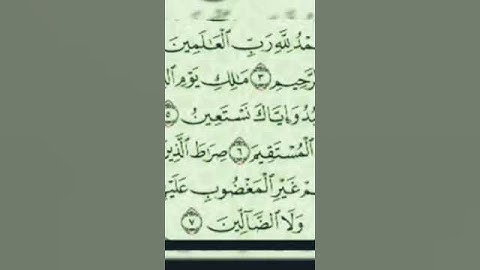 مْدُ لِلَّهِ رَبِّ الْعَالَمِينَ
لرَّحِيمِ ٣ مَالِكِ يَوْمِ
بُدُ وَإِيَّاكَ نَسْتَعِينُ ٥
الْمُسْتَقِيمَ ٦ صِرَاطَ الَّذِينَ
مْ غَيْرِ الْمَغْضُوبِ عَلَيْهِ
وَلَا الضَّآلِّينَ ٧